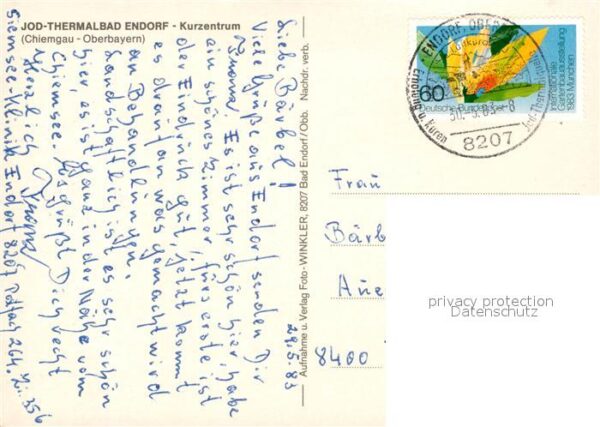 JOD-THERMALBAD ENDORF - Kurzentrum
(Chiemgau - Oberbayern)
29.5.83
Liebe Bärbel!
Viele Grüße aus Endorf senden Dir
Es ist sehr schön hier, habe
ein schönes Zimmer, fürs erste ist
der Eindruck gut, jetzt kommt
es drauf an was gemacht wird
an Behandlungen.
Landschaftlich ist es sehr schön
hier, es ist ganz in der Nähe vom
Chiemsee. Es grüßt Dich recht
Herzlich
Simssee-Klinik Endorf 8207 Postfach 264. Zi. 356
Aufnahme u. Verlag Foto-WINKLER, 8207 Bad Endorf/Obb. Nachdr. verb.
60
Deutsche Bundespost
Internationale
Gartenbauausstellung
1983 München
ENDORF, OBERBAY
Erholung u. Kuren
30.-5.83-8
8207
Frau
Bärb
Aue
8400
privacy protection
Datenschutz